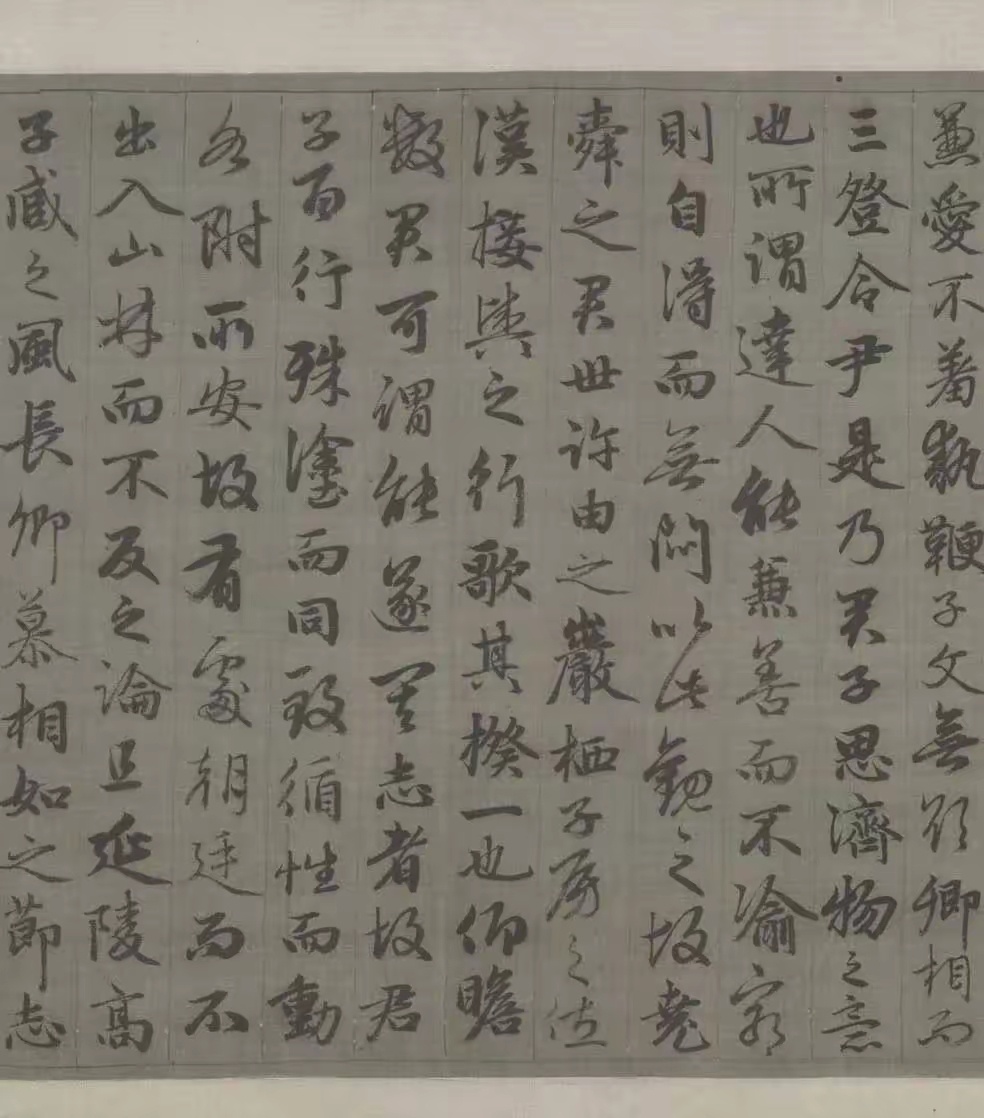 兼愛不羞執鞭子文無欲卿相而
三登令尹是乃君子思濟物之意
也所謂達人能兼善而不渝窮
則自得而無悶以此觀之故堯
舜之君世許由之巖栖子房之佐
漢接輿之行歌其揆一也仰瞻
數君可謂能遂其志者故君
子百行殊塗而同致循性而動
各附所安故有處朝廷而不
出入山林而不反之論且延陵高
子臧之風長卿慕相如之節志